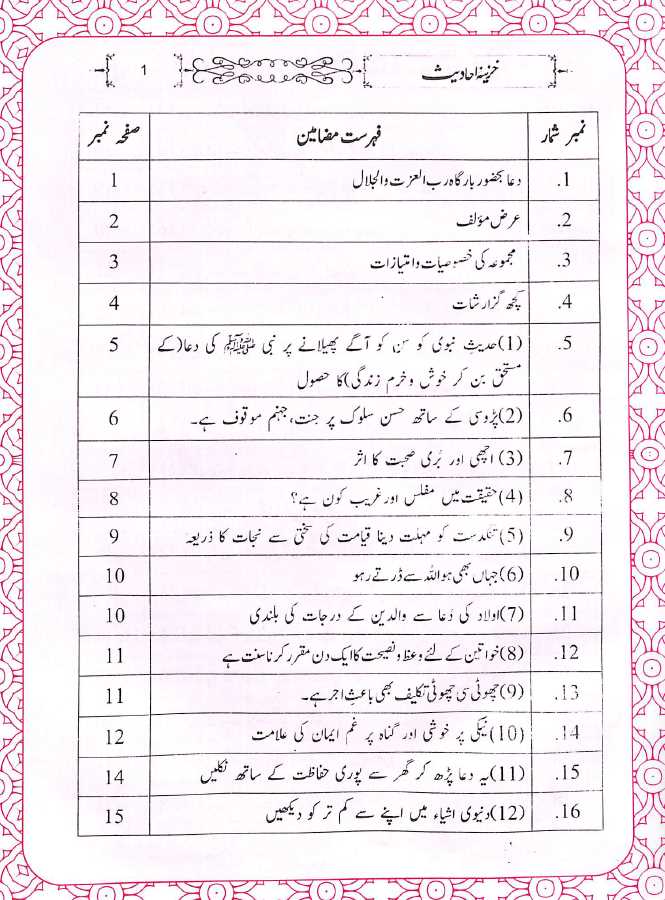 خزینۂ احادیث 1
نمبر شمار فہرست مضامین صفحہ نمبر
1. دعا بحضور بارگاہ رب العزت والجلال 1
2. عرض مؤلف 2
3. مجموعہ کی خصوصیات وامتیازات 3
4. کچھ گزارشات 4
5. (1)حدیثِ نبوی کو سن کو آگے پھیلانے پر نبی ﷺ کی دعا(کے 5
مستحق بن کر خوش وخرم زندگی)کا حصول
6. (2)پڑوسی کے ساتھ حسن سلوک پر جنت،جہنم موقوف ہے۔ 6
7. (3) اچھی اور بُری صحبت کا اثر 7
8. (4)حقیقت میں مفلس اور غریب کون ہے؟ 8
9. (5)تنگدست کو مہلت دینا قیامت کی سختی سے نجات کا ذریعہ 9
10. (6)جہاں بھی ہو اللہ سے ڈرتے رہو 10
11. (7)اولاد کی دُعا سے والدین کے درجات کی بلندی 10
12. (8)خواتین کے لئے وعظ ونصیحت کا ایک دن مقرر کرنا سنت ہے 11
13. (9)چھوٹی سی چھوٹی تکلیف بھی باعثِ اجر ہے۔ 11
14. (10)نیکی پر خوشی اور گناہ پر غم ایمان کی علامت 12
15. (11)یہ دعا پڑھ کر گھر سے پوری حفاظت کے ساتھ نکلیں 14
16. (12)دنیوی اشیاء میں اپنے سے کم تر کو دیکھیں 15